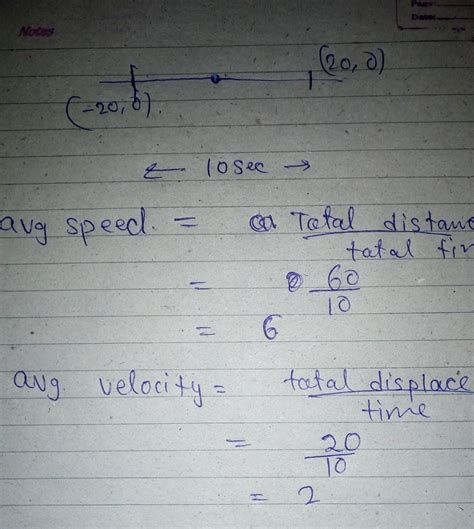 Notes
Page:
Date:
(20, 0)
(-20, 0).
← 10 sec →
avg speed. = Total distan
total tim
= 60
10
= 6
avg. velocity = total displace
time
= 20
10
= 2